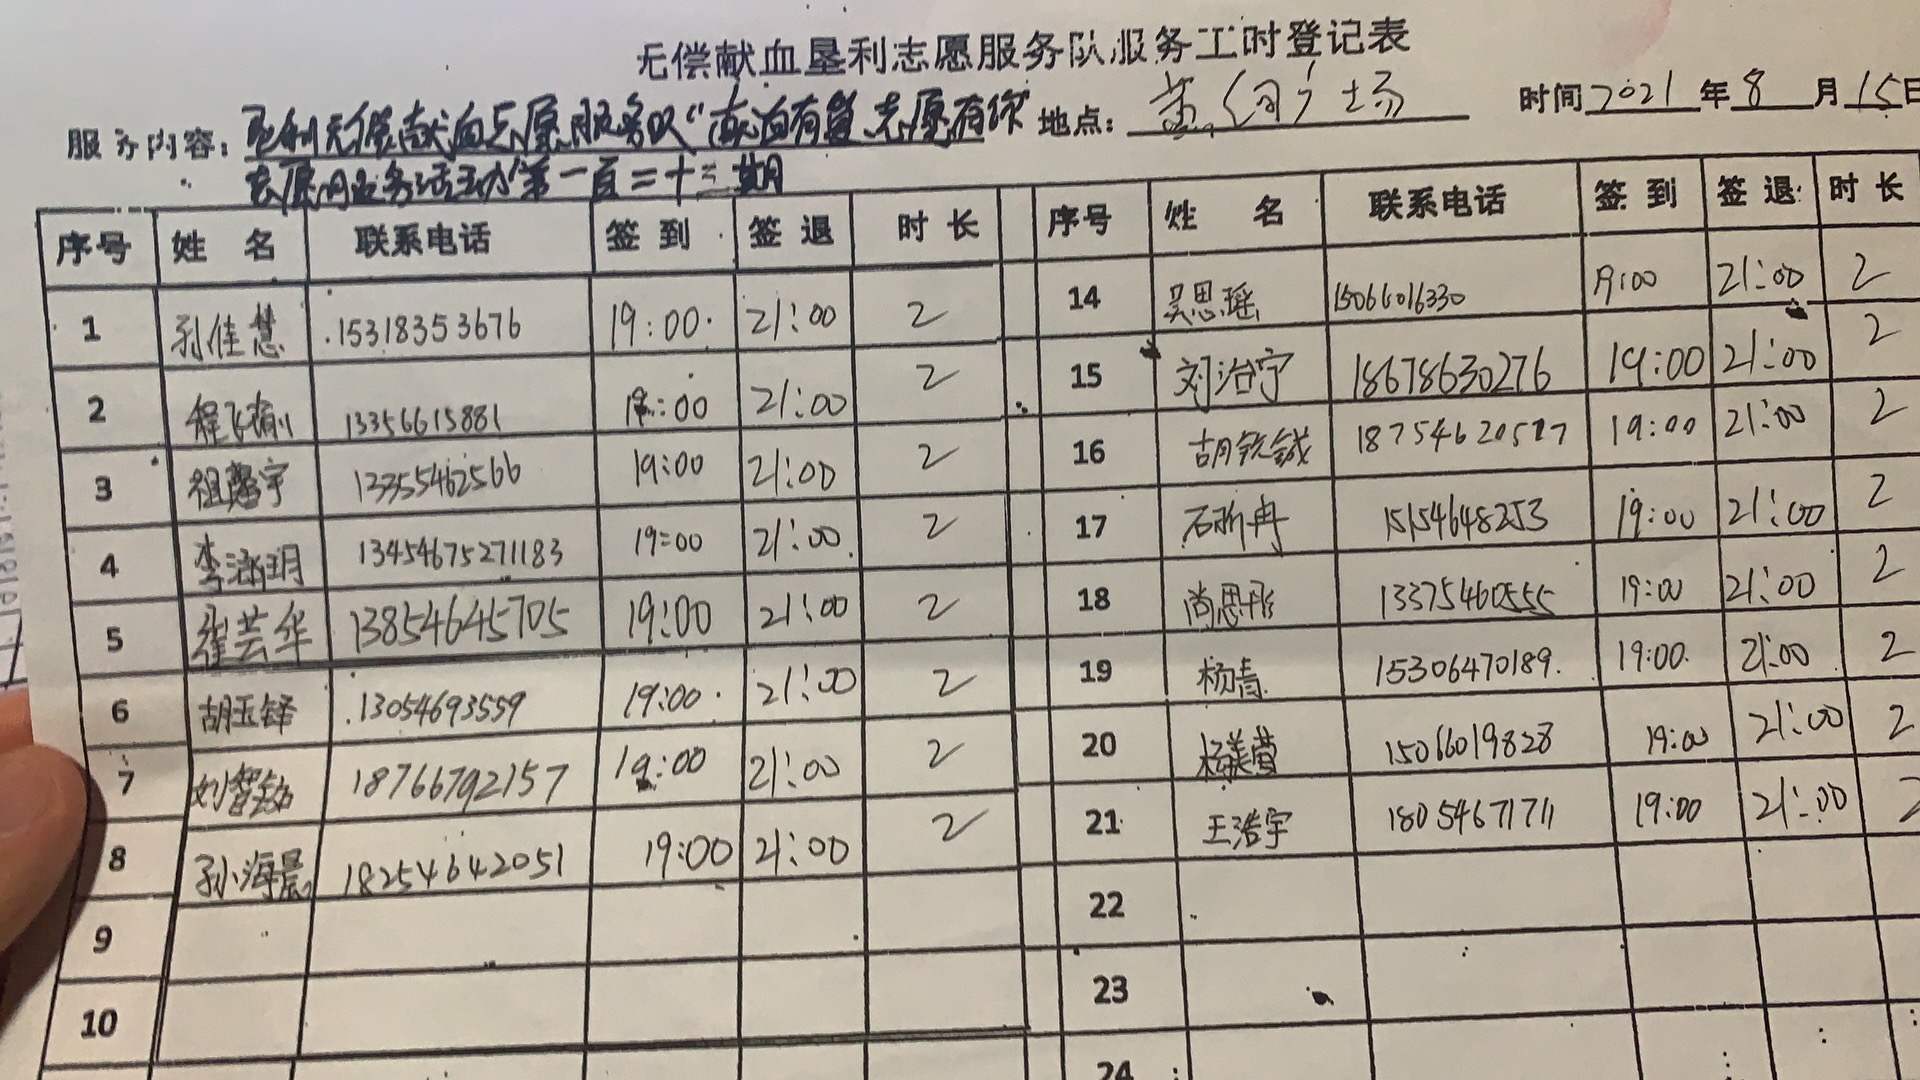 无偿献血垦利志愿服务队服务工时登记表
服务内容: 垦利无偿献血志愿服务队"献血有益、志愿有你" 地点: 黄河广场 时间 2021 年 8 月 15 日
志愿服务活动第一百二十三期
序号 姓名 联系电话 签到 签退 时长 序号 姓名 联系电话 签到 签退 时长
1 孙佳慧 15318353676 19:00 21:00 2 14 吴思瑶 19:00 21:00 2
2 程飞瑜 13356615881 19:00 21:00 2 15 刘治宁 18678630276 19:00 21:00 2
3 祖馨宇 13355462566 19:00 21:00 2 16 胡铣铖 19:00 21:00 2
4 李涵玥 13454675271183 19:00 21:00 2 17 石昕冉 15154648253 19:00 21:00 2
5 崔芸华 13854645705 19:00 21:00 2 18 尚思彤 13375460555 19:00 21:00 2
6 胡玉铎 13054693559 19:00 21:00 2 19 杨青 15306470189 19:00 21:00 2
7 刘智铭 18766792157 19:00 21:00 2 20 杨美萱 15066019828 19:00 21:00 2
8 孙海晨 18254642051 19:00 21:00 2 21 王浩宇 18054671711 19:00 21:00 2
9 22
10 23
24